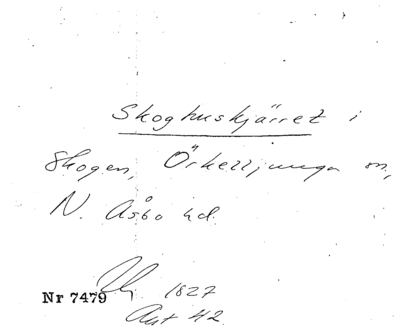 Skoghuskjärret i
Skogen, Örkelljunga sn,
N. Åsbo hd.
1827
Nr 7479
Akt 42